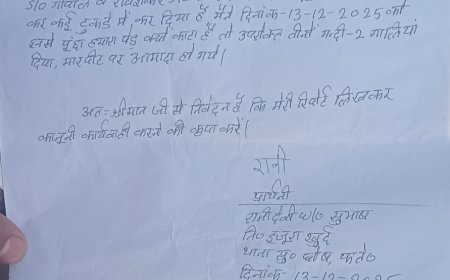 S/O गोपाल व
कर कई टुकड़े में कर दिया है मैने दिनांक-13-12-2025 को
इनसे पूछा हमारा पेड़ क्यों काटा है तो उपरोक्त तीनों गन्दी-2 गालियां
दिया, मारपीट पर आमादा हो गये।
अतः श्रीमान जी से निवेदन है कि मेरी रिपोर्ट लिखकर
कानूनी कार्यवाही करने की कृपा करें।
रानी
प्रार्थिनी
रानी देवी w/o सुभाष
नि० इजुरा खुर्द
थाना सु० घोष फते०
दिनांक 13-12-2025